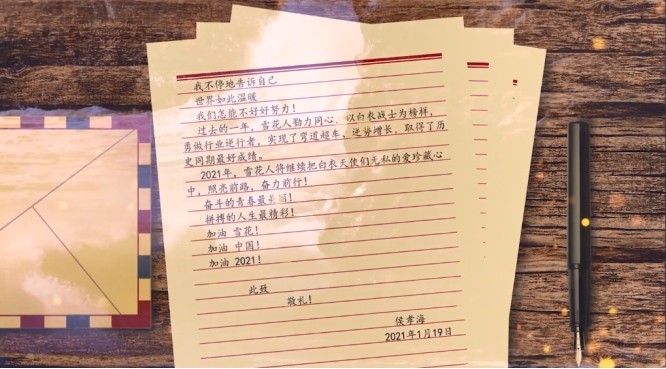 我不停地告诉自己
世界如此温暖
我们怎能不好好努力！
过去的一年，雪花人勠力同心，以白衣战士为榜样，
勇做行业逆行者，实现了弯道超车，逆势增长，取得了历
史同期最好成绩。
2021年，雪花人将继续把白衣天使们无私的爱珍藏心
中，照亮前路，奋力前行！
奋斗的青春最美丽！
拼搏的人生最精彩！
加油 雪花！
加油 中国！
加油 2021！
此致
敬礼！
侯孝海
2021年1月19日